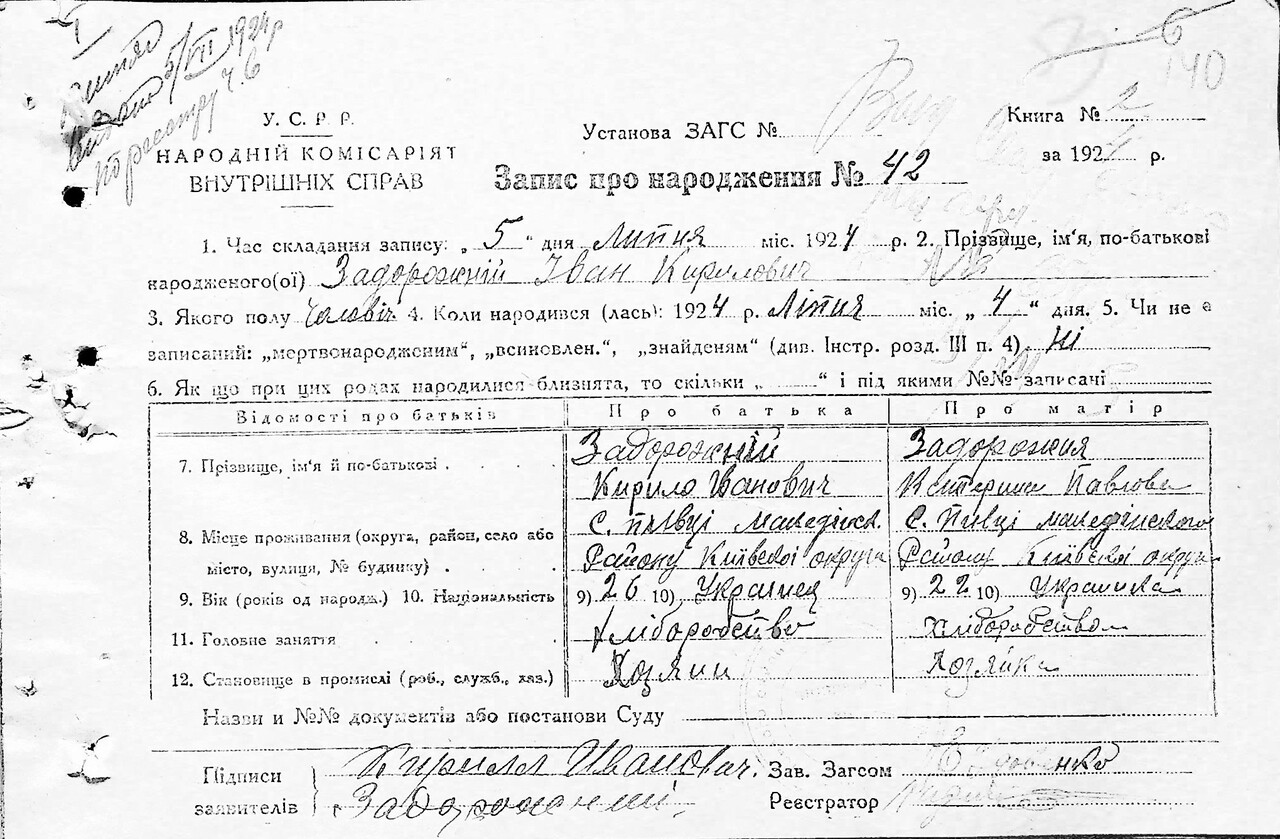 Витяг
видано 5/VII 1924 р
по реєстру Ч. 6
140
У. С. Р. Р.
НАРОДНІЙ КОМІСАРІЯТ
ВНУТРІШНІХ СПРАВ
Установа ЗАГС №
Книга № 2
за 1924 р.
Запис про народження № 42
1. Час складання запису: „ 5 “ дня Липня міс. 1924 р. 2. Прізвище, ім'я, по-батькові
народженого(ої) Задорожній Іван Кирилович
3. Якого полу Чоловіч 4. Коли народився (лась): 1924 р. Ліпня міс. „ 4 “ дня. 5. Чи не є
записаний: „мертвонародженим“, „всиновлен.“, „знайденям“ (див. Інстр. розд. III п. 4) Ні
6. Як що при цих родах народилися близнята, то скільки „ “ і під якими №№ записані
Відомості про батьків Про батька Про матір
7. Прізвище, ім'я й по-батькові Задорожній Задорожня
Кирило Іванович Катерина Павлова
8. Місце проживання (округа, район, село або С. Пивці Македінск. С. Пивці Македінского
місто, вулиця, № будинку) Району Київскої округи Району Київскої округи
9. Вік (років од народж.) 10. Національність 9) 26 10) Українец 9) 22 10) Украинка
11. Головне заняття Хлібородство хлібородством
12. Становище в промислі (роб., служб., хаз.) Хозяин Хозяйка
Назви и №№ документів або постанови Суду
Підписи Кирилл Иванович. Зав. Загсом
заявителів Задорожний Реєстратор